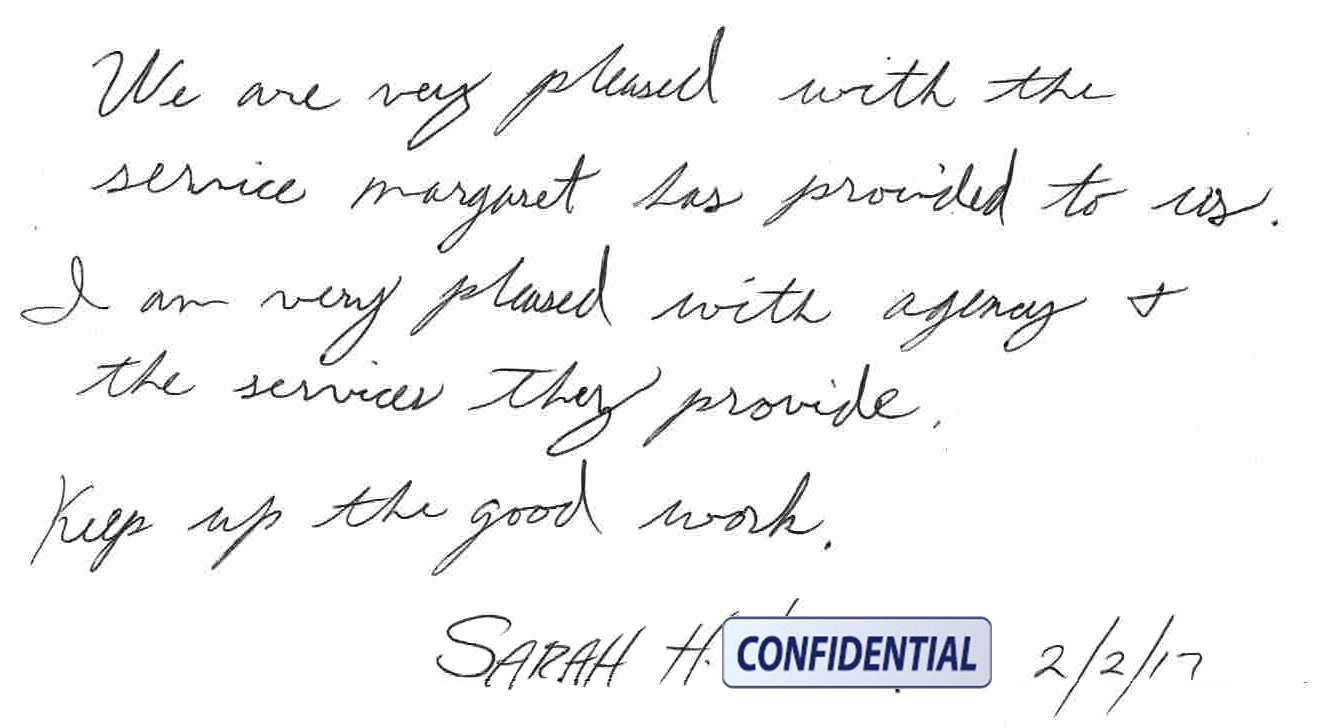 We are very pleased with the
service margaret has provided to us.
I am very pleased with agency &
the services they provide.
Keep up the good work.
SARAH H. CONFIDENTIAL 2/2/17